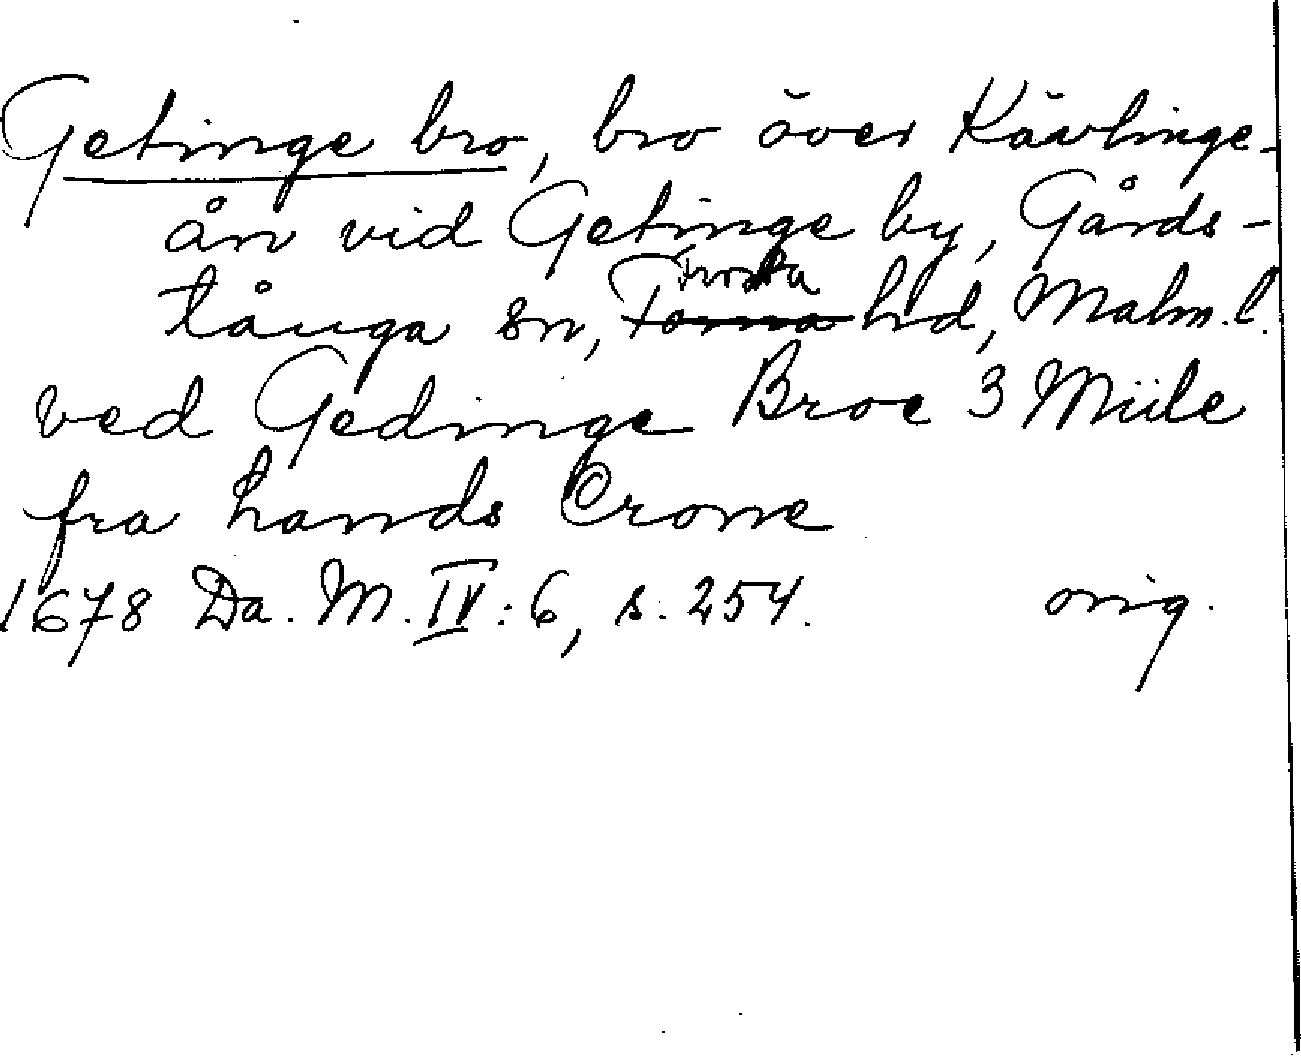 Getinge bro, bro över Kävlinge-
ån vid Getinge by, Gårds-
tånga sn, Frosta hd, Malm.l.
ved Gedinge Broe 3 Miile
fra hands Crone
1678 Da. M. IV:6, s. 254. orig.